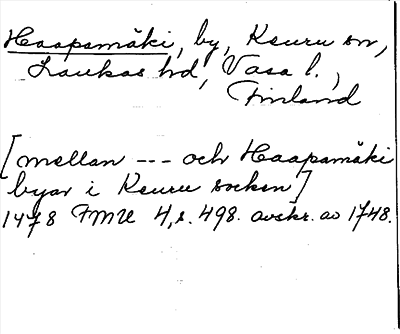 Haapamäki, by, Keuru sn,
Laukas hd, Vasa l.,
Finland
[mellan --- och Haapamäki
byar i Keuru socken]
1478 FMU 4, s. 498. avskr. av 1748.